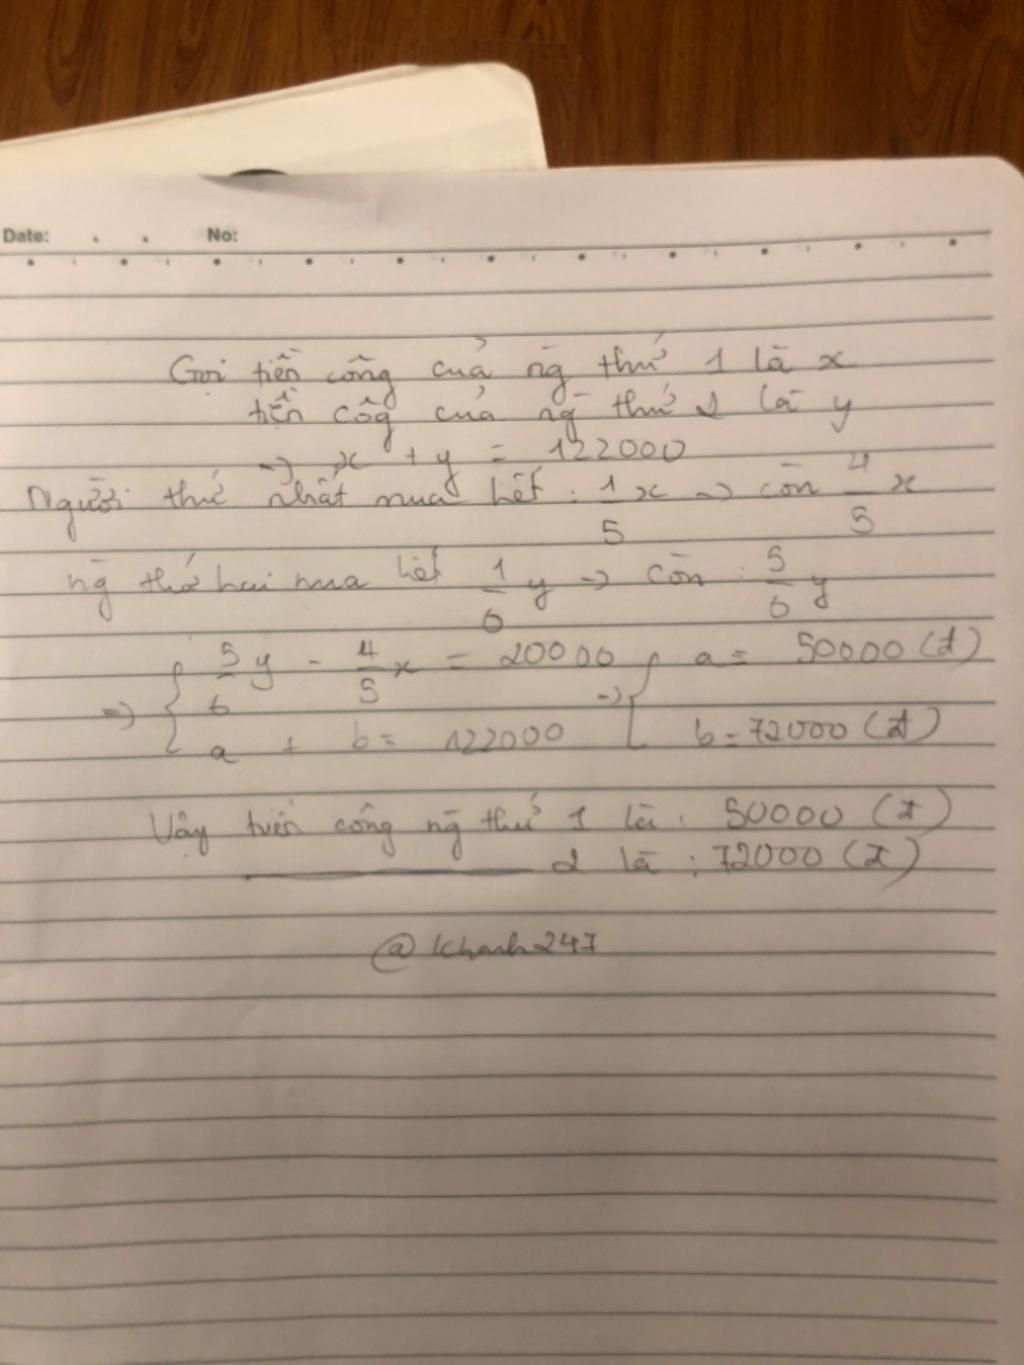 Date: No:
Gọi tiền công của ng̅ thứ 1 là x
tiền côg của ng̅ thứ 2 là y
=> x + y = 122000
Người thứ nhất mua hết : 1/5 x => còn 4/5 x
ng̅ thứ hai mua hết 1/6 y => còn : 5/6 y
=> { 5/6 y - 4/5 x = 20000 => { a = 50000 (đ)
a + b = 122000 b = 72000 (đ)
Vậy tiền công ng̅ thứ 1 là : 50000 (đ)
2 là : 72000 (đ)
@khanh247